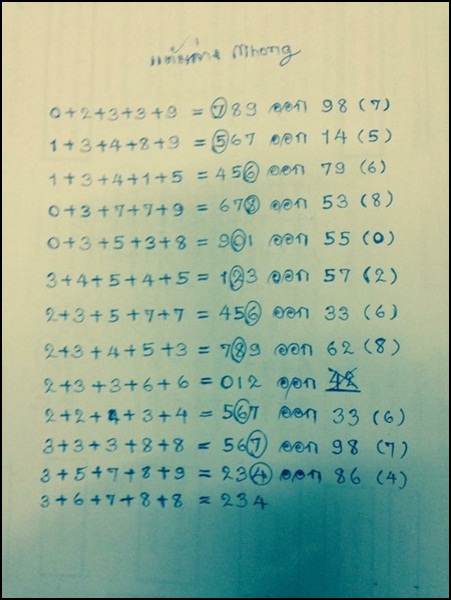 Mhong
0+2+3+3+9 = 789 ออก 98 (7)
1+3+4+8+9 = 567 ออก 14 (5)
1+3+4+1+5 = 456 ออก 79 (6)
0+3+7+7+9 = 678 ออก 53 (8)
0+3+5+3+8 = 901 ออก 55 (0)
3+4+5+4+5 = 123 ออก 57 (2)
2+3+5+7+7 = 456 ออก 33 (6)
2+3+4+5+3 = 789 ออก 62 (8)
2+3+3+6+6 = 012 ออก 48
2+2+4+3+4 = 567 ออก 33 (6)
3+3+3+8+8 = 567 ออก 98 (7)
3+5+7+8+9 = 234 ออก 86 (4)
3+6+7+8+8 = 234